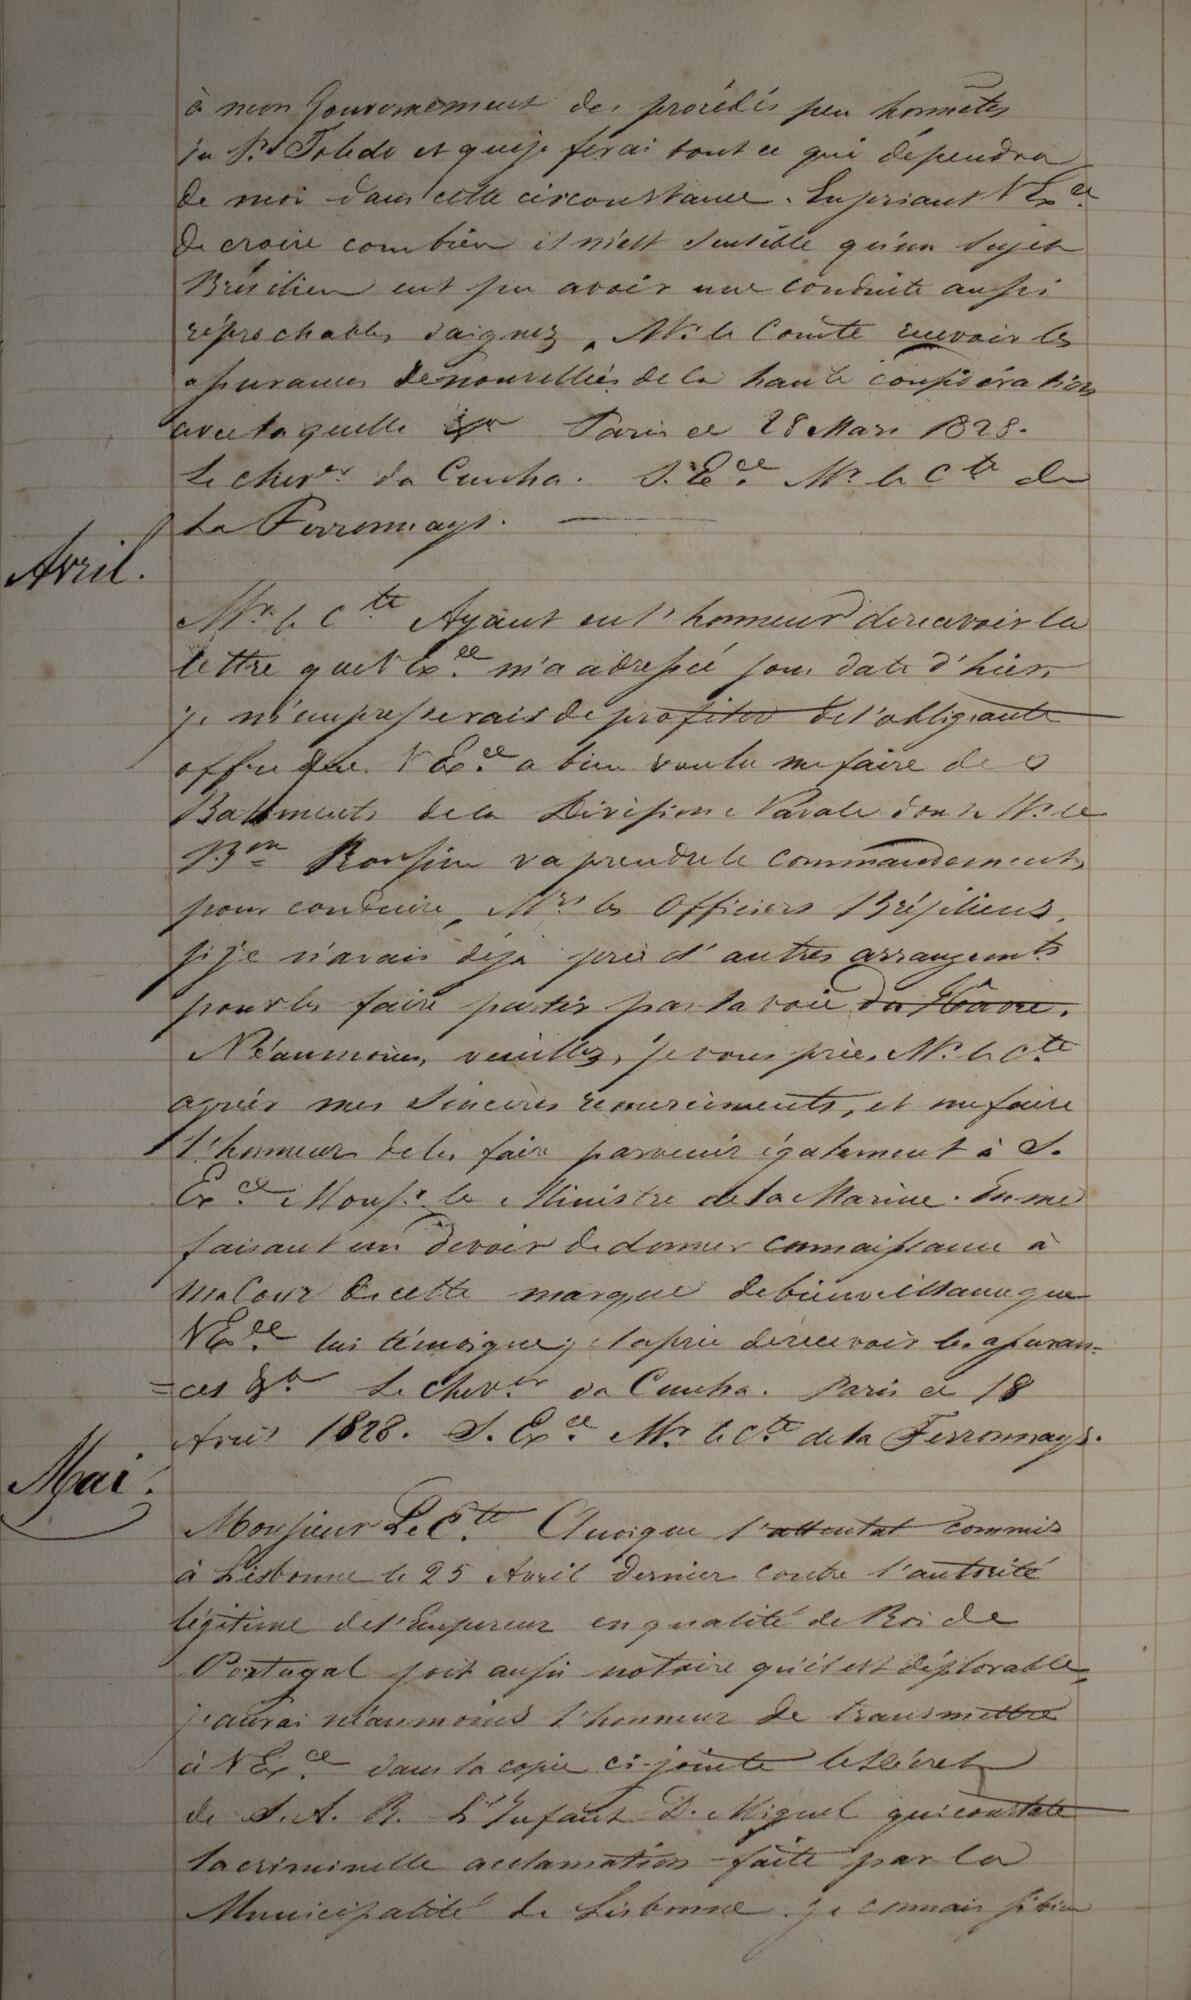 à mon Gouvernement des procédés peu honnêtes
du Sr. Toledo et que je ferai tout ce qui dépendra
de moi dans cette circonstance. En priant V Exce
de croire combien il m'est sensible qu'un Sujet
Brésilien eut pu avoir une conduite aussi
réprochable, daignez, Mr. le Comte recevoir les
assurances de nouvelles de la haute considération
avec laquelle &a Paris ce 28 Mars 1828.
Le Chever. da Cunha. S. Ece. Mr. le Cte de
La Ferronnays.
Avril.
Mr. le Cte Ayant eu l'honneur de recevoir la
lettre que V Exce. m'a adressée sous date d'hier,
je m'empresserais de profiter de l'obligeante
offre que V Exce. a bien voulu me faire des
Batiments de la Division Navale dont Mr. le
Bon Roussin va prendre le commandement
pour conduire, Mrs. les Officiers Brésiliens,
si je n'avais déjà pris d'autres arrangemts
pour les faire partir par la voie du Hâvre.
Néanmoins, veuillez, je vous prie, Mr. le Cte
agréer mes sincères remerciments, et me faire
l'honneur de les faire parvenir également à S.
Exce. Monsr. le Ministre de la Marine. En me
faisant un devoir de donner connaissance à
ma Cour de cette marque de bienveillance que
V Exce. lui témoigne, je la prie de recevoir les assuran-
=ces &a Le Chever. da Cunha. Paris ce 18
Avril 1828. S. Exce. Mr. le Cte. de la Ferronnays.
Mai.
Monsieur Le Cte. Quoique l'attentat commis
à Lisbonne le 25 Avril dernier contre l'autorité
légitime de l'Empereur en qualité de Roi de
Portugal soit aussi notoire qu'il est déplorable,
j'aurai néanmoins l'honneur de transmettre
à V Exce. dans la copie ci-jointe le Décret
de S. A. R. L'Infant D. Miguel qui constate
la criminelle acclamation faite par la
Municipalité de Lisbonne. Je connais si bien